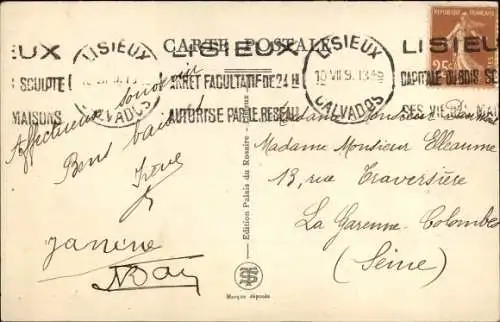 CARTE POSTALE
LISIEUX
CALVADOS
LISIEUX
ARRET FACULTATIF DE 24 H
AUTORISE PAR LE RESEAU
LISIEUX
10 VII 9. 13
CALVADOS
LISIEU
CAPITALE DU BOIS SC
SES VIE MAI
IEUX
SCULPTE
MAISONS
REPUBLIQUE FRANCAISE
25c
Affectueux souvenir
Bons baisers
Janine
Madame Monsieur
Madame Monsieur Elleaume
13, rue Traversière
La Garenne-Colombes
(Seine)
Edition Palais du Rosaire
Marque déposée